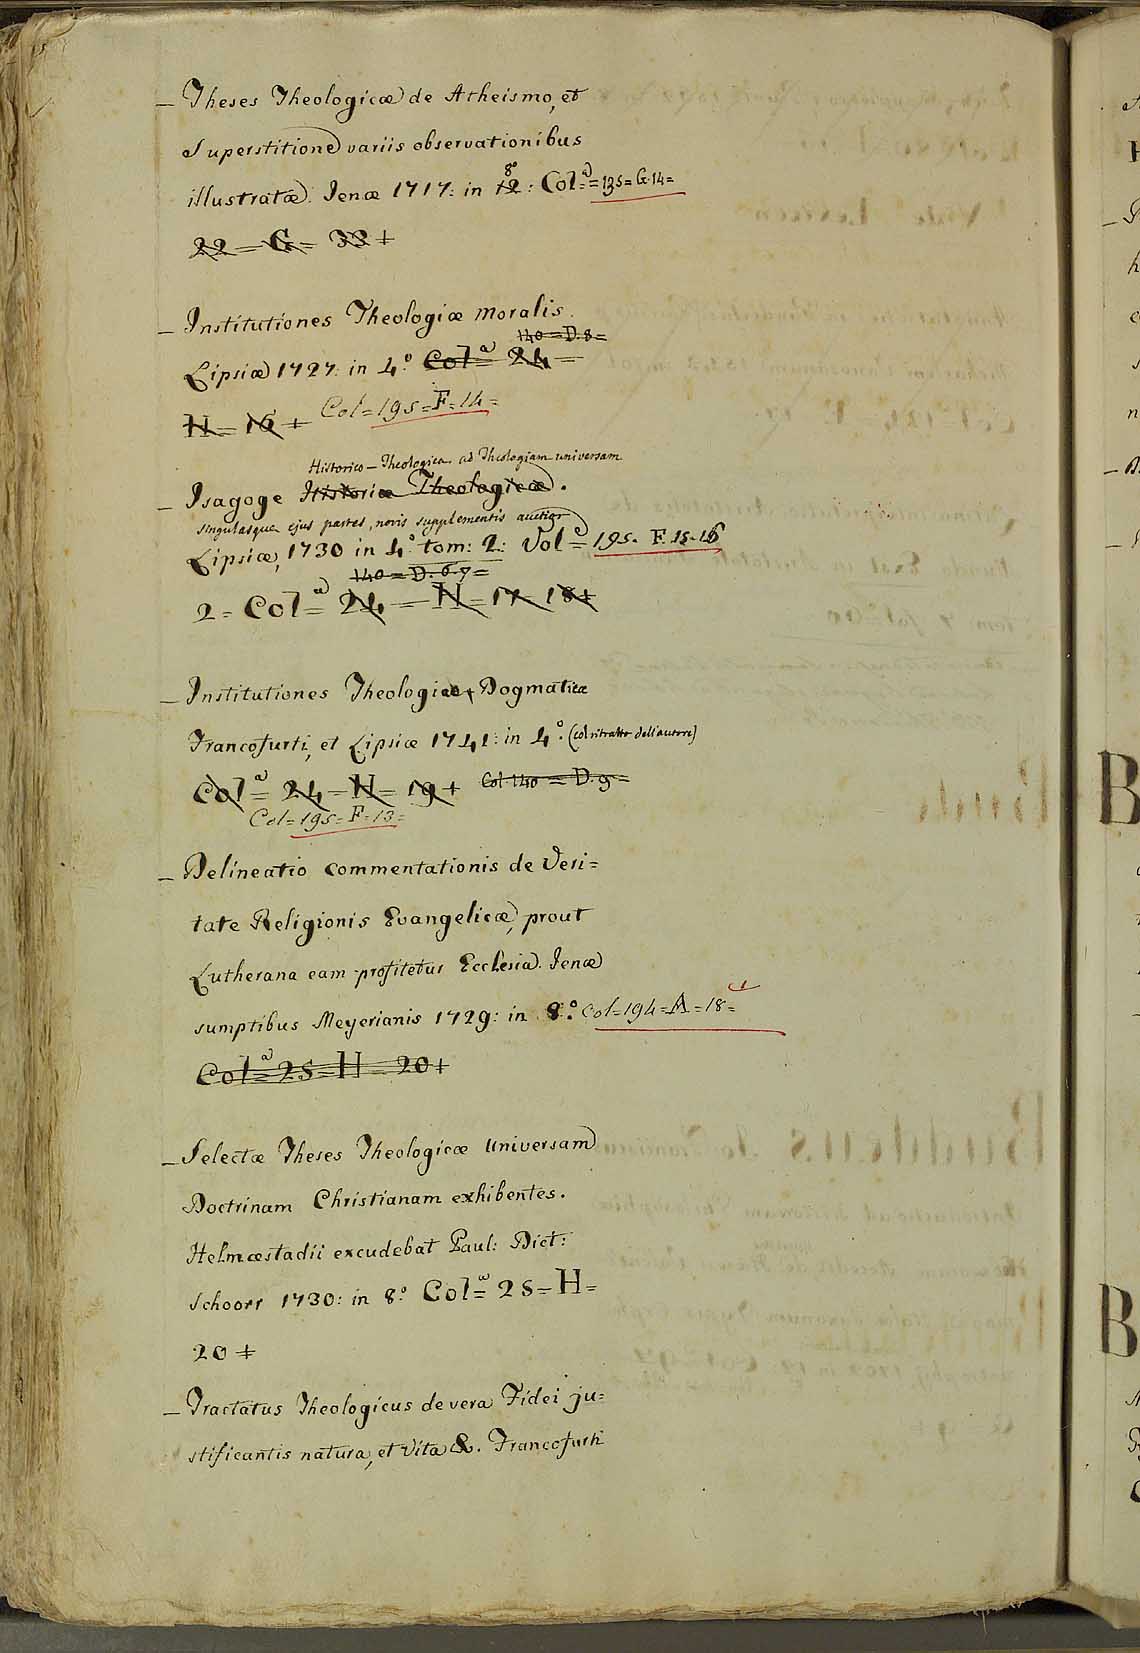 _ Theses Theologicæ de Atheismo, et
Superstitione variis observationibus
8º
illustratæ. Jenæ 1717: in 12: Colª=135=G.14=
22 = G = 33 +
_ Institutiones Theologiæ moralis.
140=D.8=
Lipsiæ 1727: in 4º Colª 24 =
H = 16 + Col=195=F=14=
Historico-Theologica ad Theologiam universam
_ Isagoge Historiæ Theologicæ.
singulasque ejus partes, novis supplementis auctior
Lipsiæ, 1730 in 4º tom: 2: Vol=195. F.15.16
140=D.6.7=
2= Colª= 24 = H = 17 18+
_ Institutiones Theologiæ Dogmaticæ
Francofurti, et Lipsiæ 1741: in 4º. (col ritratto dell'autore)
Colª= 24 = H = 19 + Col.140 = D.9=
Col=195=F=13=
_ Delineatio commentationis de Veri=
tate Religionis Evangelicæ, prout
Lutherana eam profitetur Ecclesia. Jenæ
sumptibus Meyerianis 1729: in 8º. Col=194=A=18=
Colª=25=H=20+
_ Selectæ Theses Theologicæ universam
Doctrinam Christianam exhibentes.
Helmæstadii excudebat Paul: Dict:
Schoorr 1730: in 8º Colª= 25=H=
20 +
_ Tractatus Theologicus de vera Fidei ju=
stificantis natura, et vita &. Francofurti